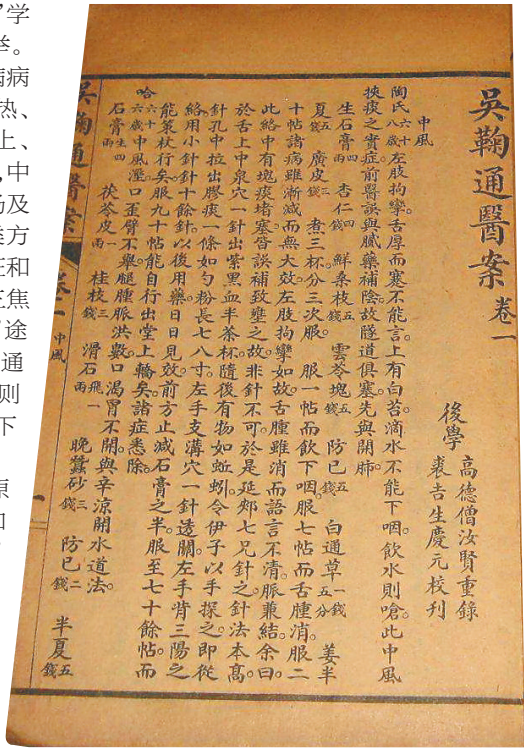 ”学
举。
病
热、
上、
,中
汤及
类方
证和
三焦
途
通
则
下
原
吳鞠通醫案 卷一
後學 高德僧汝賢重錄
裘吉生慶元校刊
中風
陶氏六十八歲左肢拘攣。舌厚而蹇不能言。上有白苔。滴水不能下咽。飲水則嗆。此中風
挾痰之實症。前醫誤與膩藥補陰。故隧道俱塞。先與開肺。
生石膏四兩 杏仁四錢 鮮桑枝五錢 雲苓塊五錢 防已五錢 白通草一錢五分 姜半
夏五錢 廣皮三錢 煮三杯分三次服。 服一帖而飲下咽。服七帖而舌腫消。服二
十帖諸病雖漸減而無大效。左肢拘攣如故。舌腫雖消而語言不清。脈兼結。余曰。
此絡中有塊痰堵塞。皆誤補致壅之故。非針不可。於是延郟七兄針之。針法本高。
於舌上中泉穴一針。出紫黑血半茶杯。隨後有物如蚯蚓。令伊子以手探之。即從
針孔中拉出膠痰一條如勺粉。長七八寸。左手支溝穴一針透關。左手背三陽之
絡用小針針十餘針。以後用藥日日見效。前方止減石膏之半。服至七十餘帖。而
能策杖行矣。服九十帖。能自行出堂上轎矣。諸症悉除。
哈六十六歲中風溼。口歪臂不舉。腿腫脈洪數。口渴胃不開。與辛涼開水道法。
石膏生四兩 茯苓皮一兩 桂枝三錢 滑石飛一兩 晚蠶砂三錢 防已二錢 半夏五錢
吳鞠通醫案 卷一 中風 一